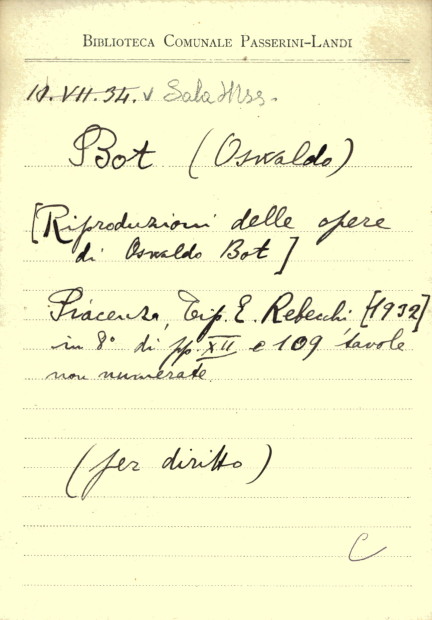 BIBLIOTECA COMUNALE PASSERINI-LANDI
10.VII.34. v Sala Mss.
Bot (Oswaldo)
[Riproduzioni delle opere
di Oswaldo Bot]
Piacenza, Tip. E. Rebecchi [1932]
in 8° di pp. XII e 109 tavole
non numerate.
(per diritto)
C